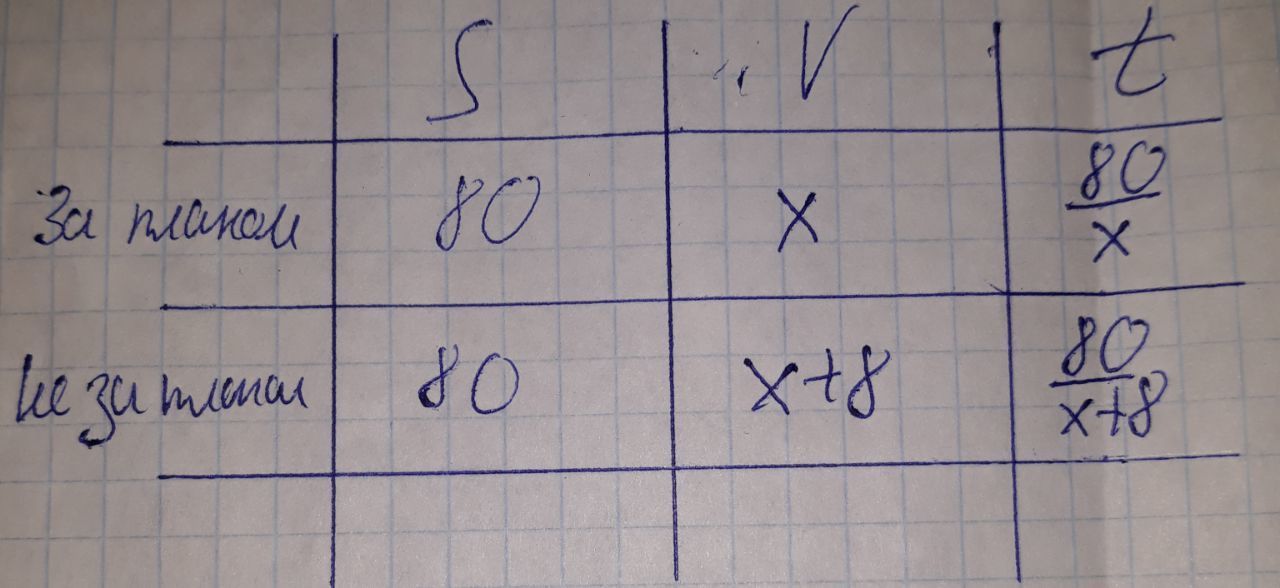 S V t
За планом 80 x 80/x
Не за планом 80 x+8 80/x+8